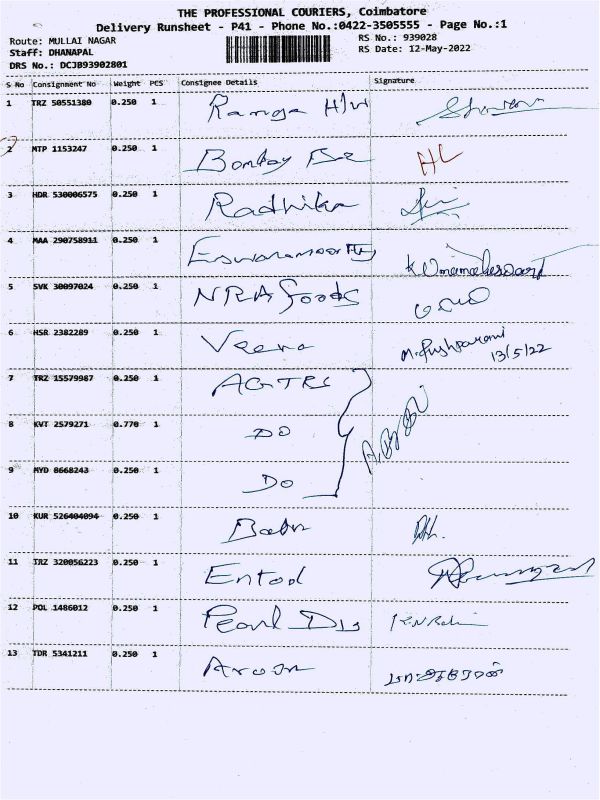 THE PROFESSIONAL COURIERS, Coimbatore
Delivery Runsheet - P41 - Phone No.:0422-3505555 - Page No.:1
Route: MULLAI NAGAR RS No.: 939028
Staff: DHANAPAL RS Date: 12-May-2022
DRS No.: DCJB93902801
S No Consignment No Weight PCS Consignee Details Signature
1 TRZ 50551380 0.250 1 Ranga H/W
2 MTP 1153247 0.250 1 Bombay
3 HDR 530006575 0.250 1 Radhika
4 MAA 290758911 0.250 1 Eswaramoorthy K Umamaheswari
5 SVK 30097024 0.250 1 NRA Foods
6 HSR 2382289 0.250 1 Veena M. Pushparani
13/5/22
7 TRZ 15579987 0.250 1 AGTRS
8 KVT 2579271 0.770 1 DO
9 MYD 8668243 0.250 1 DO
10 KUR 526404094 0.250 1
11 TRZ 320056223 0.250 1 Entod
12 POL 1486012 0.250 1 Pearl
13 TDR 5341211 0.250 1